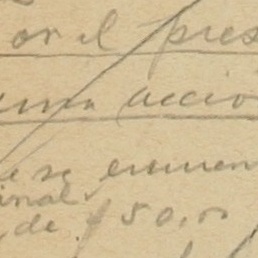 por el pres
una accio
se enumen
inal
de $50.00